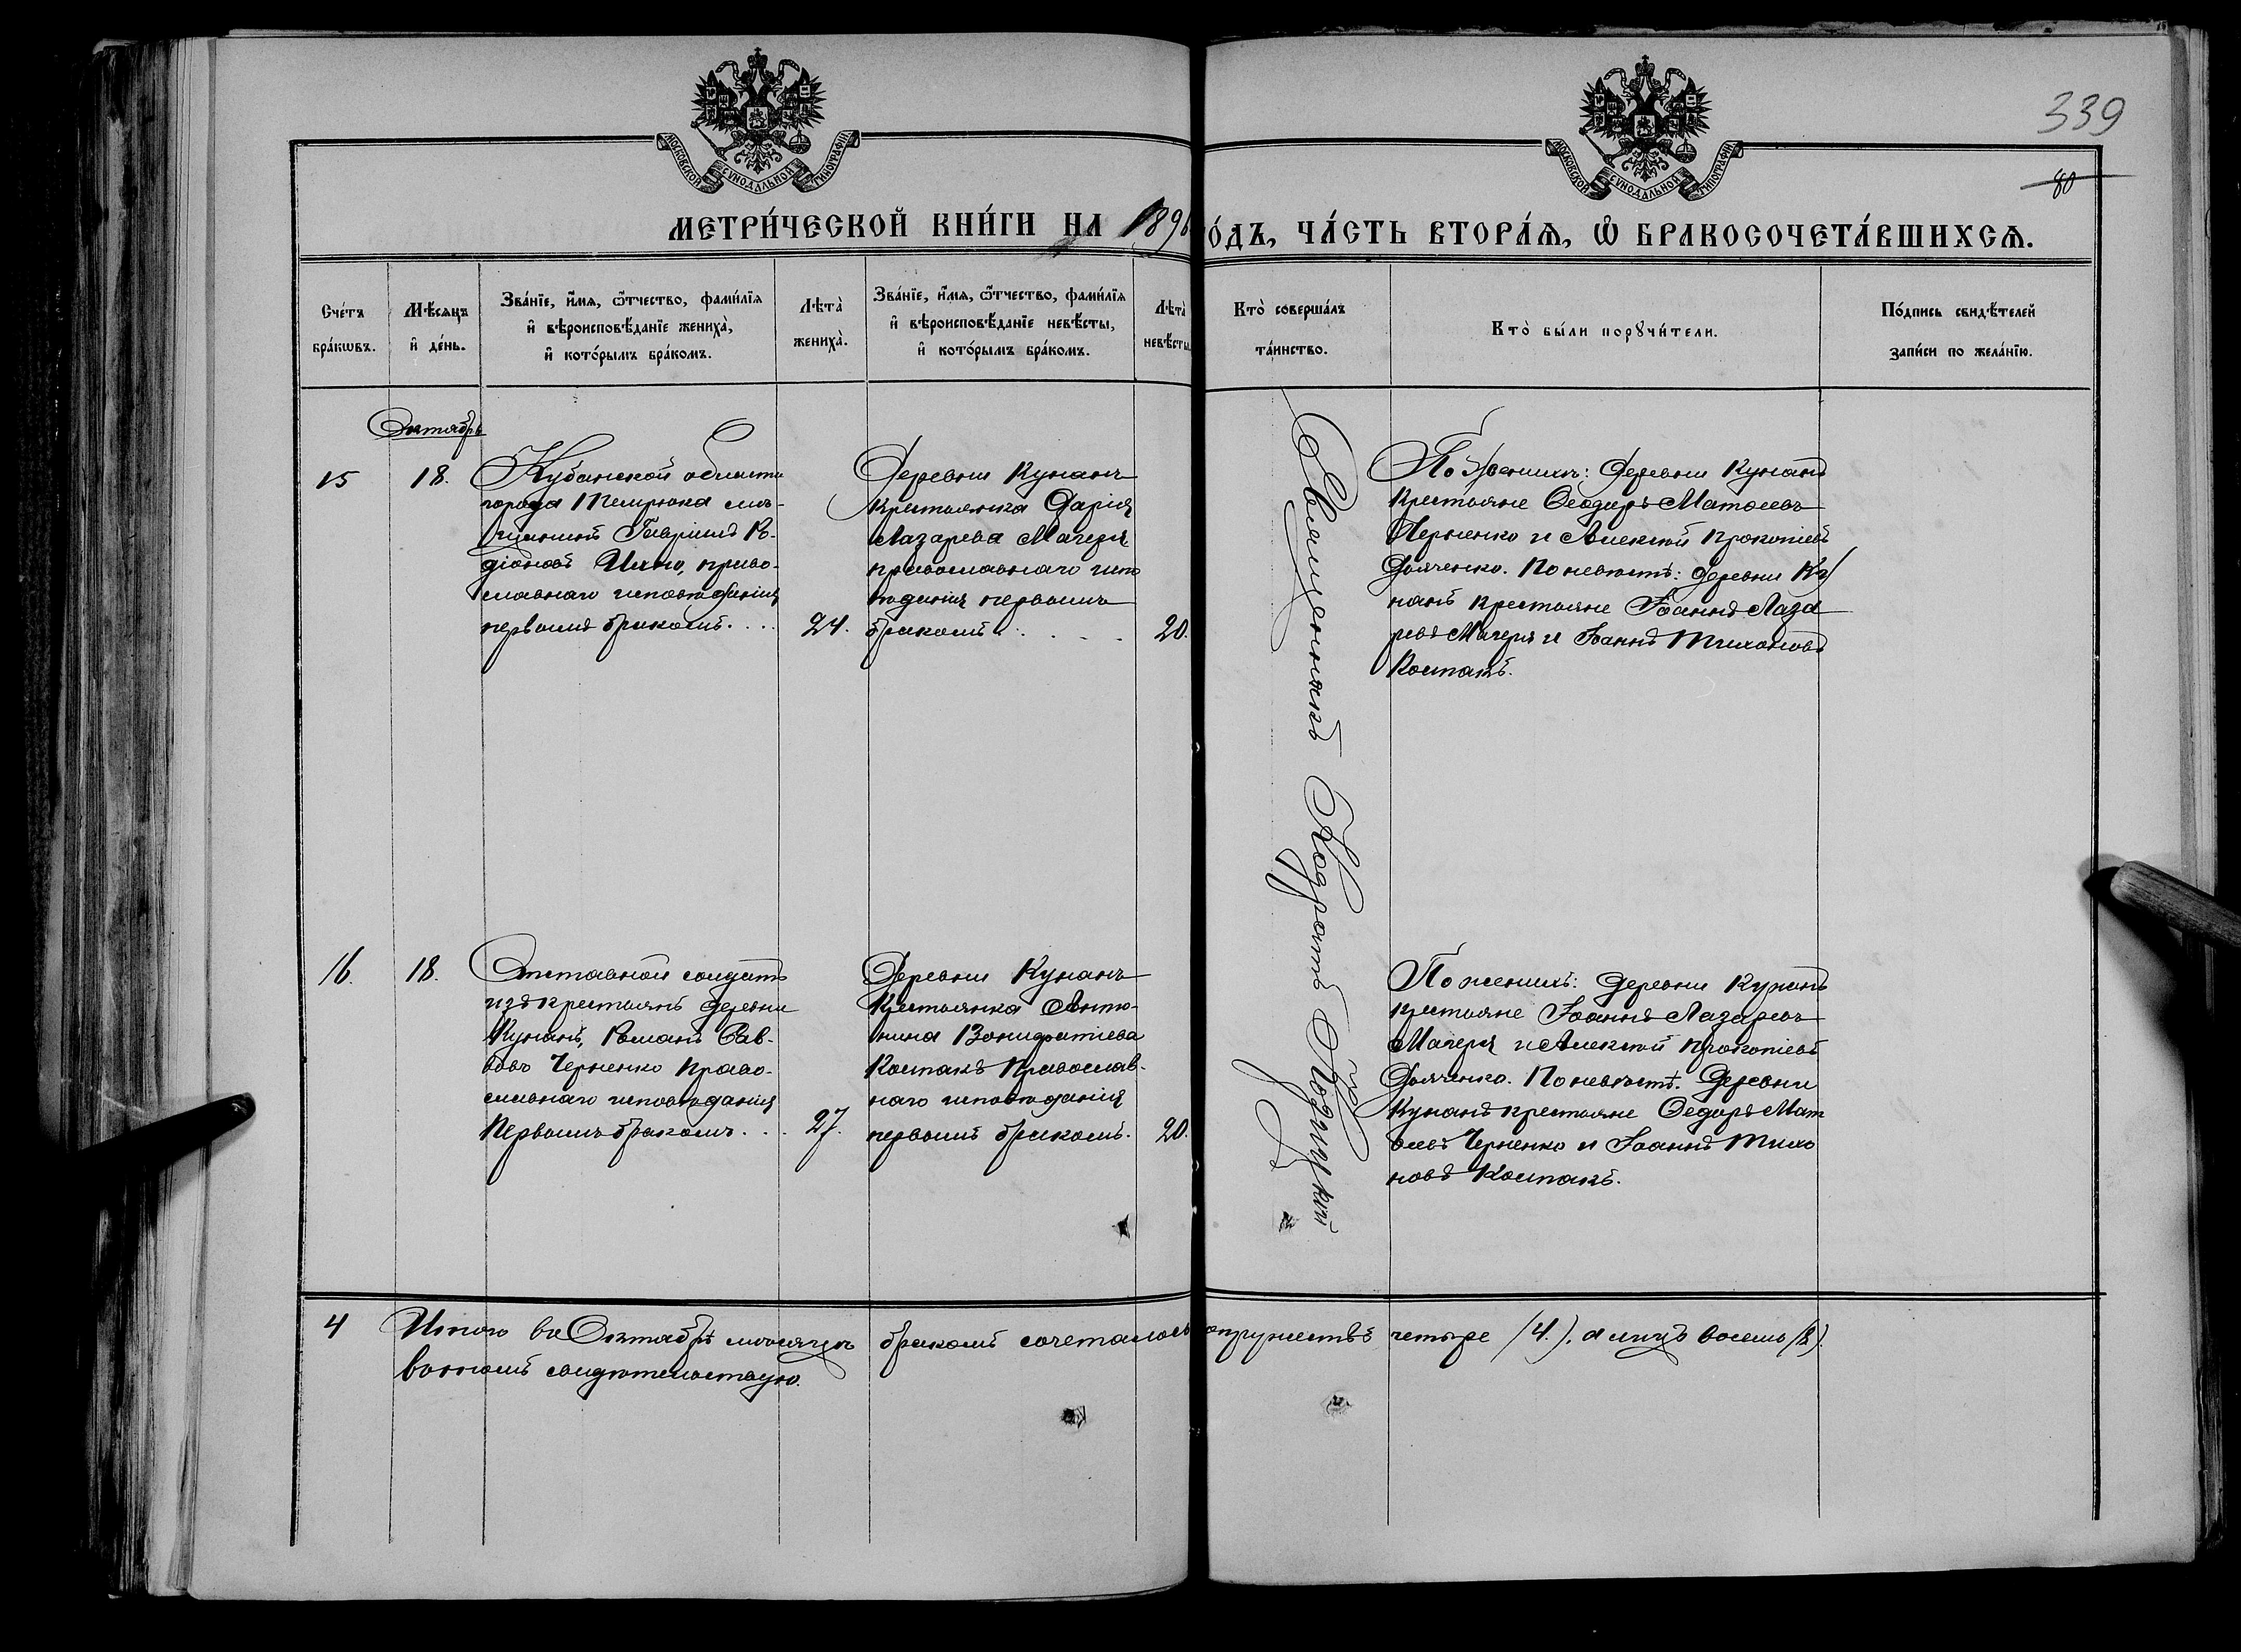 339
80
МОСКОВСКОЙ СѴНОДАЛЬНОЙ ТИПОГРАФІИ
МОСКОВСКОЙ СѴНОДАЛЬНОЙ ТИПОГРАФІИ
МЕТРИ́ЧЕСКОЙ КНИ́ГИ НА 1896
О́ДЪ, ЧА́СТЬ ВТОРА́Ѧ, Ѽ БРАКОСОЧЕТА́ВШИХСѦ.
Сче́тъ
бра́кѡвъ.
Мѣ́сяцъ
и҆ де́нь.
Зва́нїе, и҆́мѧ, ѻ҆́тчество, фами́лїѧ
и҆ вѣроисповѣ́данїе жениха̀,
и҆ кото́рымъ бра́комъ.
Лѣта̀
жениха̀.
Зва́нїе, и҆́мѧ, ѻ҆́тчество, фами́лїѧ
и҆ вѣроисповѣ́данїе невѣ́сты,
и҆ кото́рымъ бра́комъ.
Лѣта̀
невѣ́сты
Кто̀ соверша́лъ
та́инство.
Кто̀ бы́ли порꙋчи́тели.
По́дпись свидѣ́телей
за́писи по жела́нїю.
Октябрь
15
18.
Кубанской области
города Темрюка мѣ-
щанинъ Гавріилъ Ро-
діоновъ право-
славнаго исповѣданія
первымъ бракомъ. . . .
24.
Деревни Кунанъ
крестьянка Дарія
Лазарева Магеря
православнаго испо
вѣданія первымъ
бракомъ. . . .
20.
Священникъ Кодратъ
По женихѣ: деревни Кунанъ
крестьяне Ѳеодоръ Матѳеевъ
Черненко и Алексѣй Прокопіевъ
Дьяченко. По невѣстѣ: деревни Ку
нанъ крестьяне Іоаннъ Лаза
ревъ Магеря и Іоаннъ Тихоновъ
Костакъ.
16.
18.
Отставной солдатъ
изъ крестьянъ деревни
Кунанъ, Романъ Сав-
вовъ Черненко право-
славнаго исповѣданія
первымъ бракомъ. . .
27.
Деревни Кунанъ
крестьянка Анто-
нина Вонифатіева
Костакъ православ-
наго исповѣданія
первымъ бракомъ.
20.
По женихѣ: деревни Кунанъ
крестьяне Іоаннъ Лазаревъ
Магеря и Алексѣй Прокопіевъ
Дьяченко. По невѣстѣ: деревни
Кунанъ крестьяне Ѳедоръ Мат
ѳеевъ Черненко и Іоаннъ Тихо
новъ Костакъ.
4
Итого въ Октябрѣ мѣсяцѣ бракомъ сочеталось супружествъ четыре (4.), а лицъ восемь (8).
въ томъ свидѣтельствую.